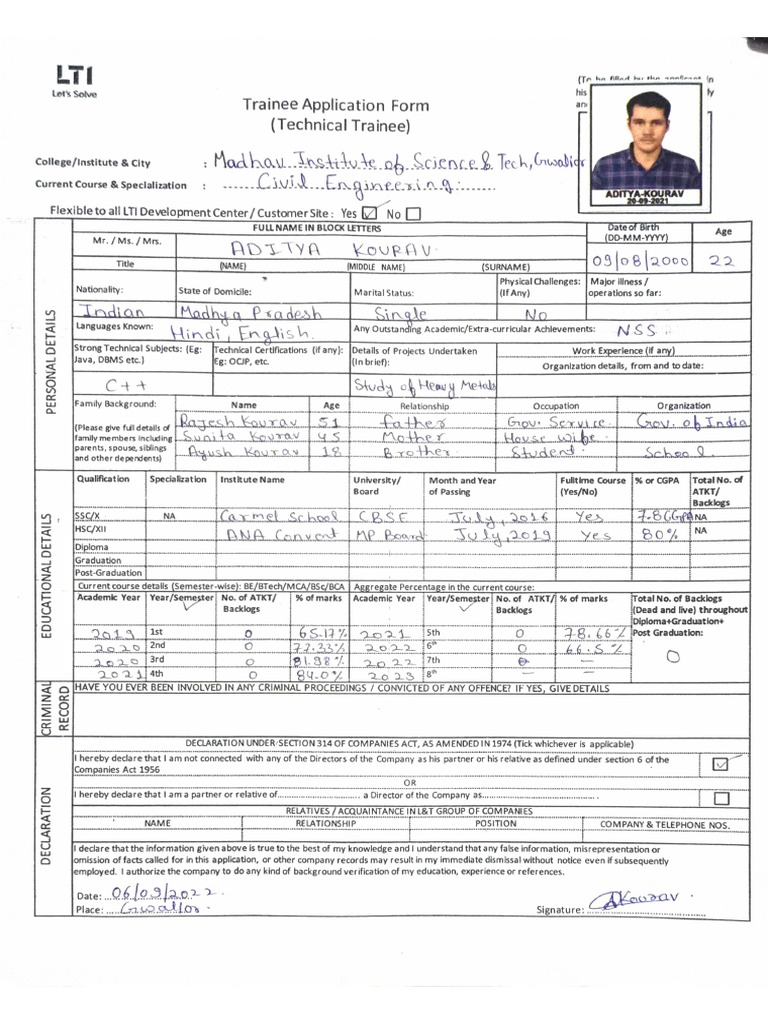 LTI
Let's Solve
(To be filled by the applicant in
his
ly
an
Trainee Application Form
(Technical Trainee)
ADITYA-KOURAV
20-09-2021
College/Institute & City : Madhav Institute of Science & Tech, Gwalior
Current Course & Specialization : Civil Engineering
Flexible to all LTI Development Center / Customer Site : Yes ☑ No ☐
PERSONAL DETAILS
FULL NAME IN BLOCK LETTERS Date of Birth (DD-MM-YYYY) Age
Mr. / Ms. / Mrs. ADITYA KOURAV 09/08/2000 22
Title (NAME) (MIDDLE NAME) (SURNAME)
Nationality: State of Domicile: Marital Status: Physical Challenges: (If Any) Major illness / operations so far:
Indian Madhya Pradesh Single No
Languages Known: Hindi, English. Any Outstanding Academic/Extra-curricular Achievements: NSS
Strong Technical Subjects: (Eg: Java, DBMS etc.) Technical Certifications (if any): Eg: OCJP, etc. Details of Projects Undertaken (In brief): Work Experience (if any)
Organization details, from and to date:
C++ Study of Heavy Metals
Family Background: Name Age Relationship Occupation Organization
(Please give full details of family members including parents, spouse, siblings and other dependents)
Rajesh Kourav 51 Father Gov. Service Gov. of India
Sunita Kourav 45 Mother House wife
Ayush Kourav 18 Brother Student School.
EDUCATIONAL DETAILS
Qualification Specialization Institute Name University/ Board Month and Year of Passing Fulltime Course (Yes/No) % or CGPA Total No. of ATKT/ Backlogs
SSC/X NA Carmel School CBSE July, 2016 Yes 7.8 CGPA NA
HSC/XII ANA Convent MP Board July, 2019 Yes 80% NA
Diploma
Graduation
Post-Graduation
Current course details (Semester-wise): BE/BTech/MCA/BSc/BCA Aggregate Percentage in the current course:
Academic Year Year/Semester No. of ATKT/ Backlogs % of marks Academic Year Year/Semester No. of ATKT/ Backlogs % of marks Total No. of Backlogs (Dead and live) throughout Diploma+Graduation+ Post Graduation:
2019 1st 0 65.17% 2021 5th 0 78.66%
2020 2nd 0 77.33% 2022 6th 0 66.5% 0
2020 3rd 0 81.98% 2022 7th 0 —
2021 4th 0 84.0% 2023 8th — —
CRIMINAL RECORD
HAVE YOU EVER BEEN INVOLVED IN ANY CRIMINAL PROCEEDINGS / CONVICTED OF ANY OFFENCE? IF YES, GIVE DETAILS
DECLARATION
DECLARATION UNDER SECTION 314 OF COMPANIES ACT, AS AMENDED IN 1974 (Tick whichever is applicable)
I hereby declare that I am not connected with any of the Directors of the Company as his partner or his relative as defined under section 6 of the ☑
Companies Act 1956
OR
I hereby declare that I am a partner or relative of............................ a Director of the Company as..................................... ☐
RELATIVES / ACQUAINTANCE IN L&T GROUP OF COMPANIES
NAME RELATIONSHIP POSITION COMPANY & TELEPHONE NOS.
I declare that the information given above is true to the best of my knowledge and I understand that any false information, misrepresentation or
omission of facts called for in this application, or other company records may result in my immediate dismissal without notice even if subsequently
employed. I authorize the company to do any kind of background verification of my education, experience or references.
Date: 06/09/2022
Place: Gwalior Signature: AKourav